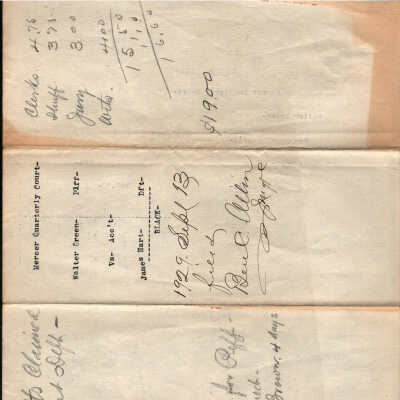 Clerks 4.76
Shuff 3 75
Jury 3.00
Atts. 4.00
15.50
1.10
16.60
$19.00
Mercer Quarterly Court-
Walter Green- Plff-
Vs- Acc't-
James Hart- Dft-
BLACK-
1929. Sept 13
filed
Ben C Allin
Judge
to Claimed
Deft -
for Plff -
Brown. 4 days